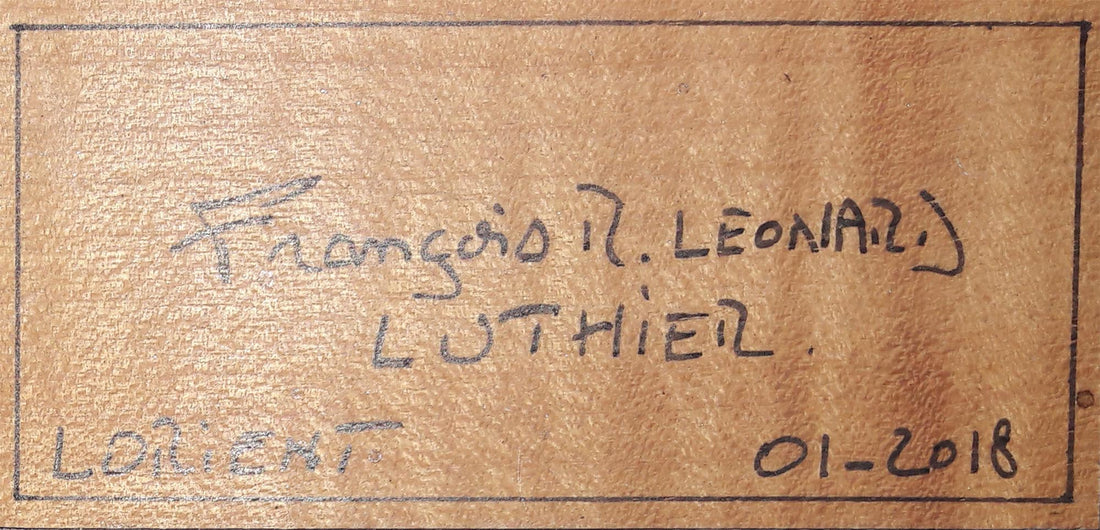 François R. LEONARD
LUTHiER.
LORiENT.
01-2018